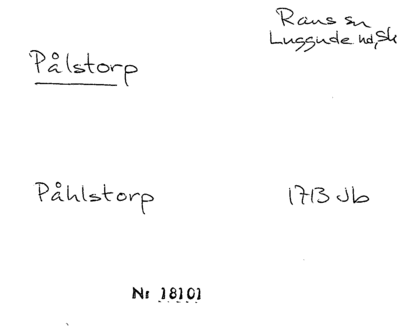 Raus sn
Luggude hd, Sk
Pålstorp
Påhlstorp 1713 Jb
Nr 18101